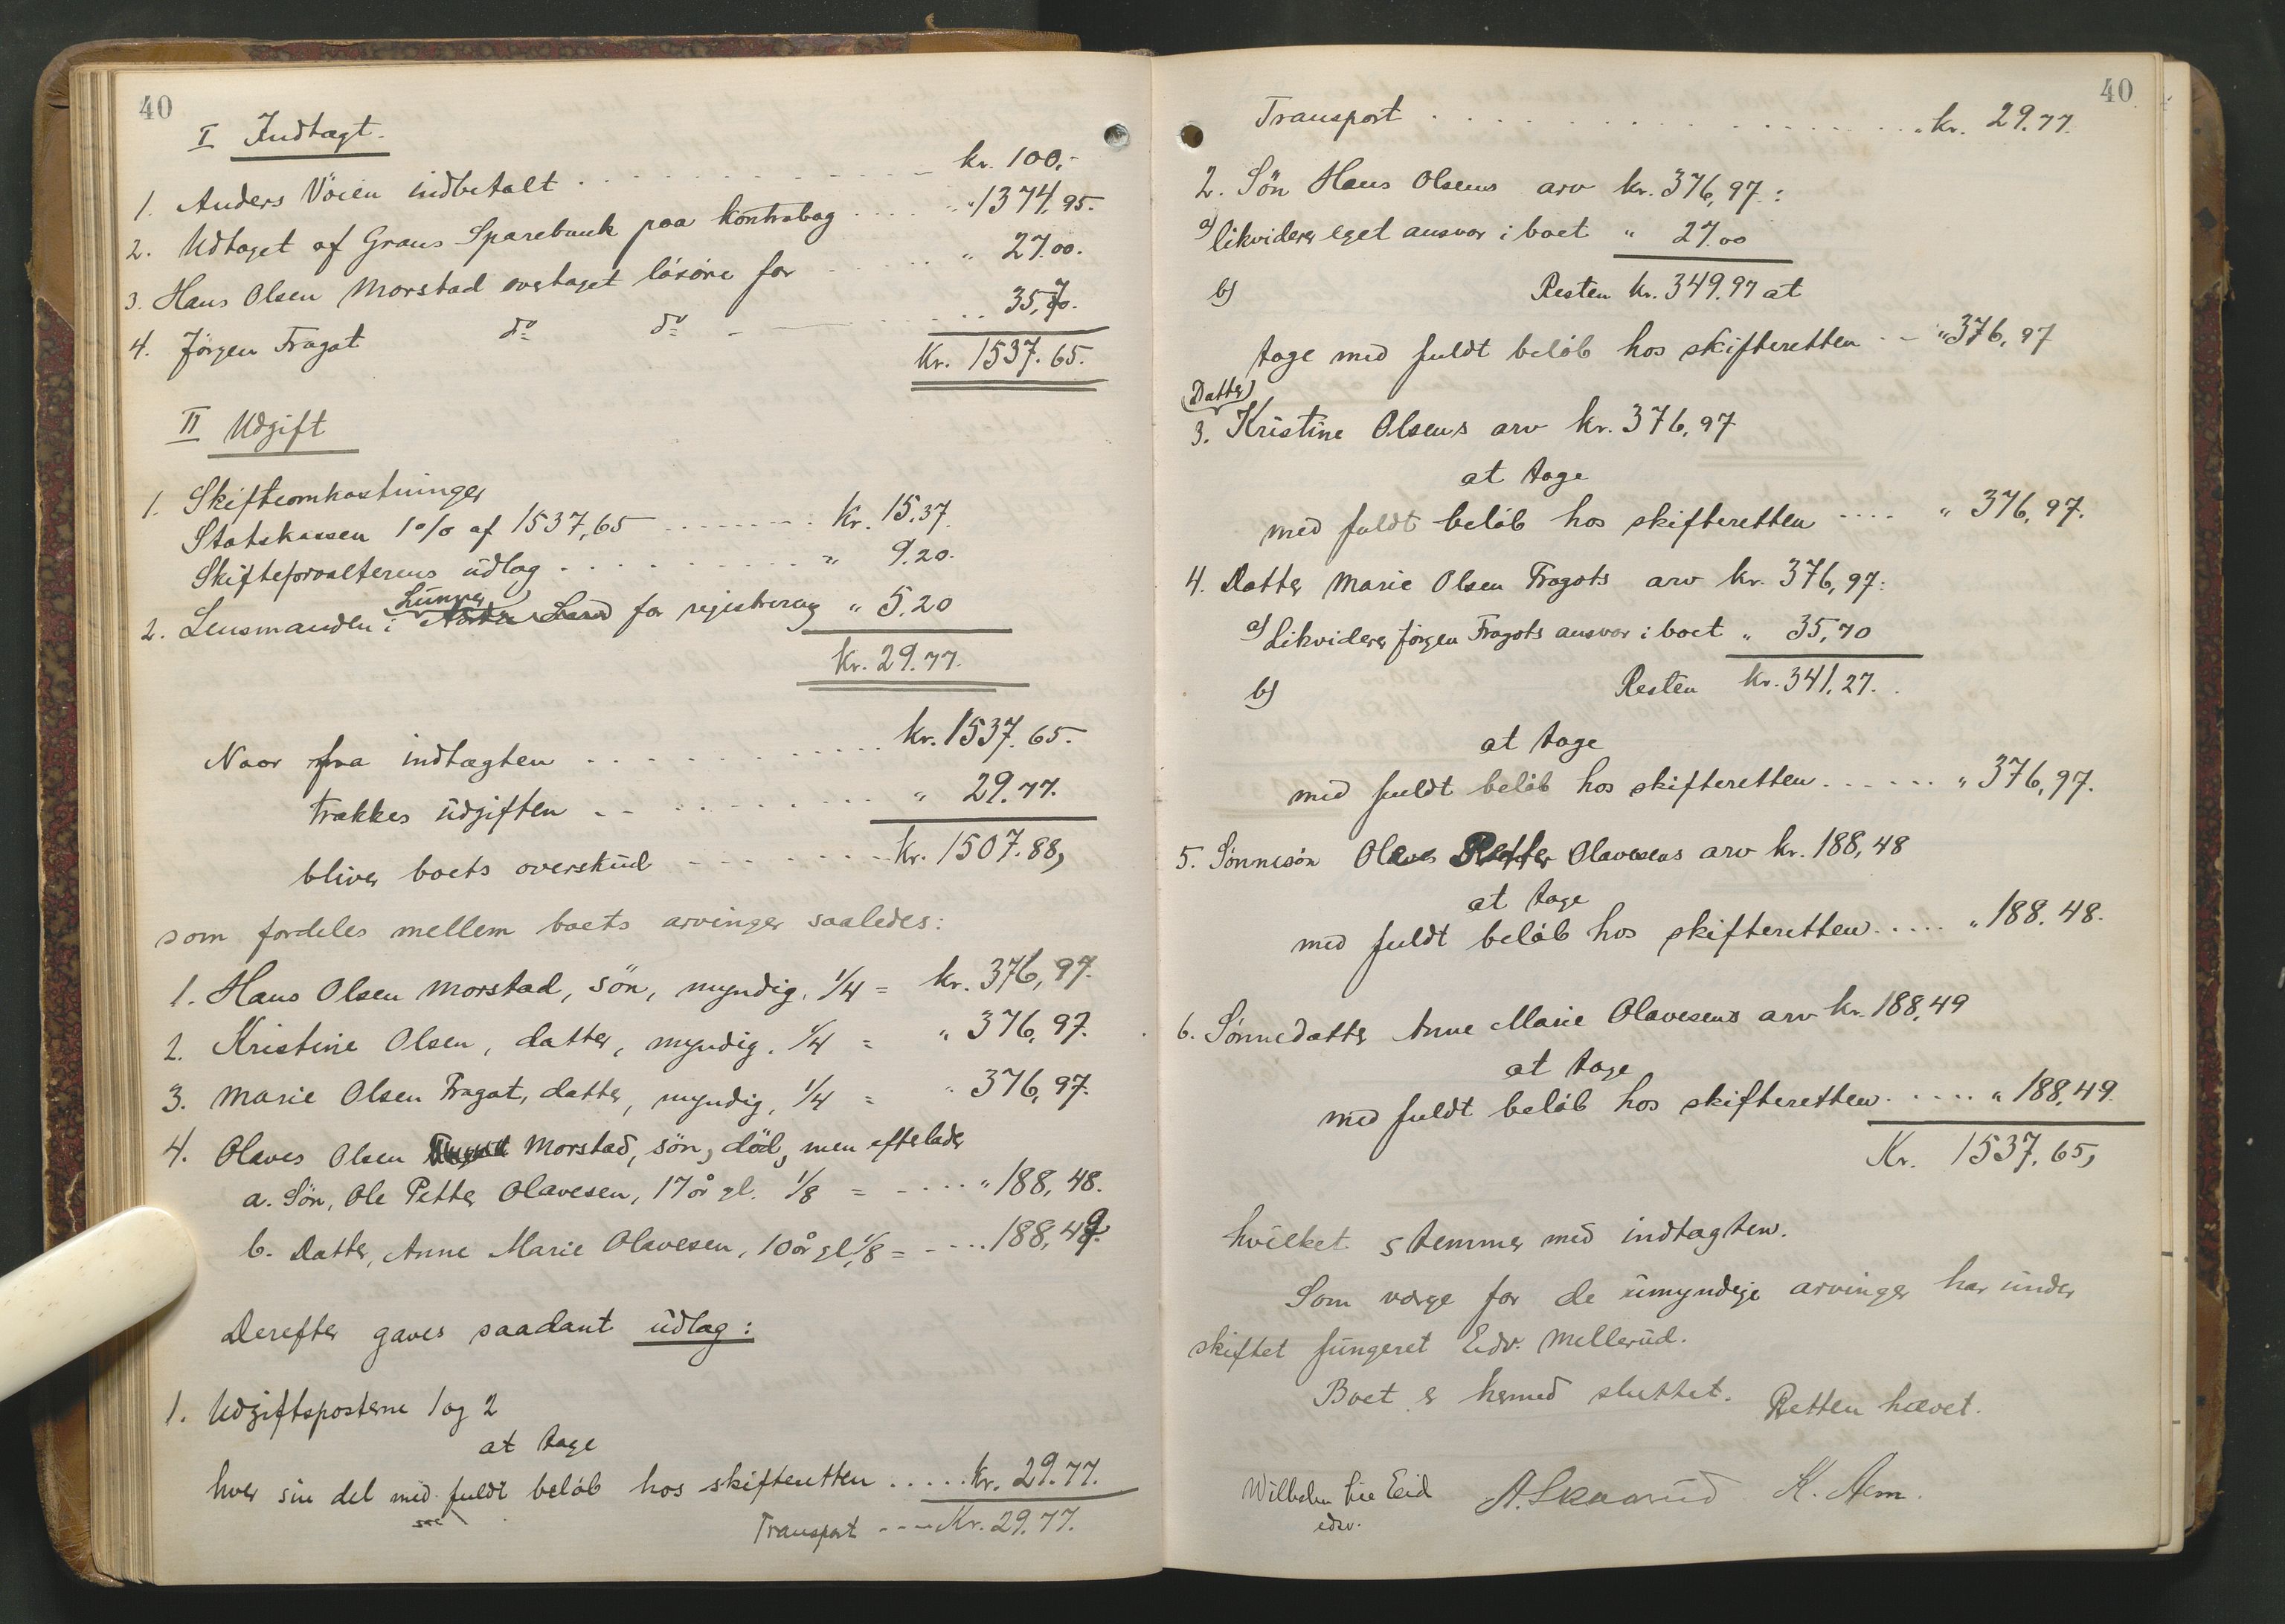 40
I Indtægt.
1. Anders Vöien indbetalt . . . . . kr. 100,-
2. Udtaget af Grans Sparebank paa kontrabog . . . . " 1374,95.
3. Hans Olsen Morstad overtaget lösöre for . . . . " 27.00.
4. Jörgen Fragot do do - . . . . 35,70.
Kr. 1537.65.
II Udgift
1. Skifteomkostninger
Statskassen 1 o/o af 1537,65 . . . . Kr. 15.37.
Skifteforvalterens udlag . . . . " 9.20.
Lunner
2. Lensmanden i for registrering " 5.20
Kr. 29.77.
Naar fra indtægten . . . . kr. 1537.65.
trækkes udgiften . . . . " 29.77.
bliver boets overskud . . . . Kr. 1507.88,
som fordeles mellem boets arvinger saaledes:
1. Hans Olsen Morstad, sön, myndig, 1/4 = kr. 376,97.
2. Kristine Olsen, datter, myndig. 1/4 = " 376,97.
3. Marie Olsen Fragot, datter, myndig, 1/4 = " 376,97.
4. Olaves Olsen Morstad, sön, död, men efterlader
a. Sön, Ole Petter Olavesen, 17 år gl. 1/8 = . . . . " 188,48.
b. Datter, Anne Marie Olavesen, 10 år gl, 1/8 = . . . . 188,49.
Derefter gaves saadant udlag:
1. Udgiftsposterne 1 og 2
at tage
hver sin del med fuldt belöb hos skifteretten . . . . . Kr. 29.77.
Transport - - - Kr. 29.77.
40
Transport . . . . . kr. 29.77.
2. Sön Hans Olsens arv kr. 376,97 :
a) likviderer eget ansvar i boet " 27.00
b) Resten kr. 349.97 at
tage med fuldt belöb hos skifteretten . . " 376,97
Datter
3. Kristine Olsens arv kr. 376,97
at tage
med fuldt belöb hos skifteretten . . . . " 376,97.
4. Datter Marie Olsen Fragots arv kr. 376,97:
a) Likviderer Jörgen Fragots ansvar i boet " 35,70
b) Resten kr. 341,27.
at tage
med fuldt belöb hos skifteretten . . . . . . " 376,97.
5. Sönnesön Petter Olavesens arv kr. 188,48
at tage
med fuldt belöb hos skifteretten . . . . . " 188.48.
6. Sönnedatter Anne Marie Olavesens arv kr. 188,49
at tage
med fuldt belöb hos skifteretten . . . . . " 188,49.
Kr. 1537,65,
hvilket stemmer med indtægten.
Som værge for de umyndige arvinger har under
skiftet fungeret Edv. Mellerud.
Boet er hermed sluttet. Retten hævet.
Wilhelm Eid A. Skaarud K. Aem.
edsv.